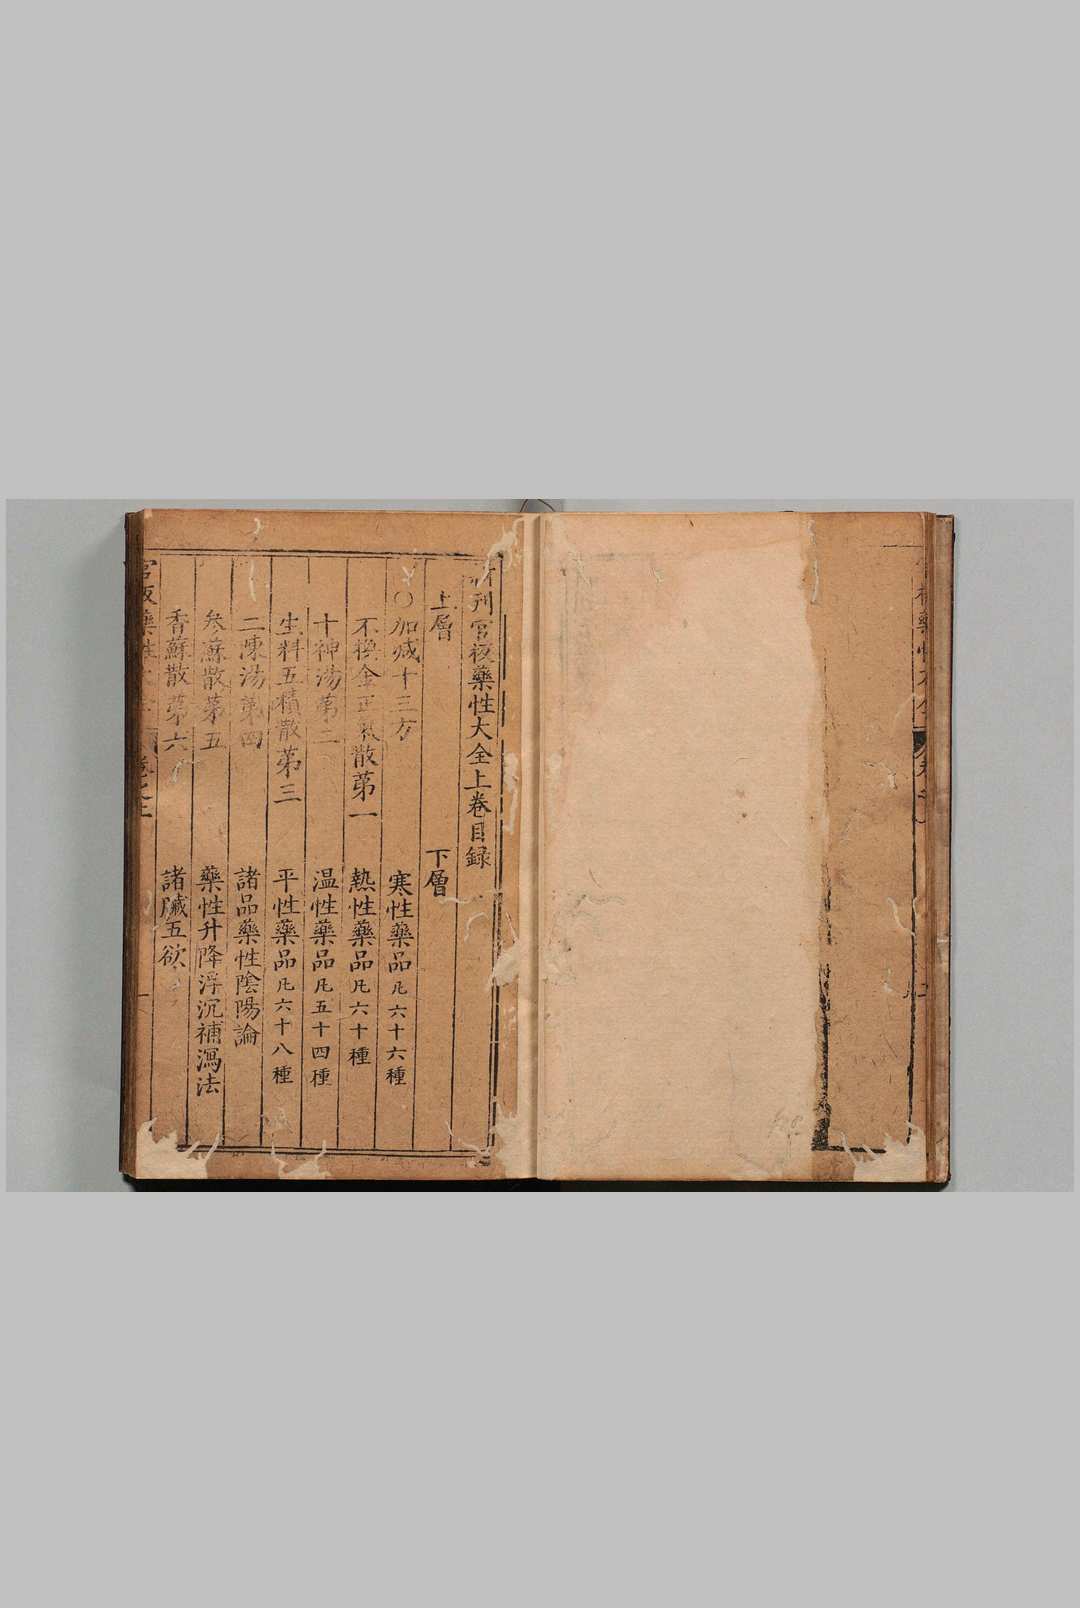 新刊官板藥性大全上卷目録
上層
下層
○加减十三方
寒性藥品凡六十六種
不換金正氣散第一
熱性藥品凡六十種
十神湯第二
温性藥品凡五十四種
生料五積散第三
平性藥品凡六十八種
二陳湯第四
諸品藥性陰陽論
參蘇散第五
藥性升降浮沉補瀉法
香蘇散第六
諸臟五欲
官板藥性大全 卷之上